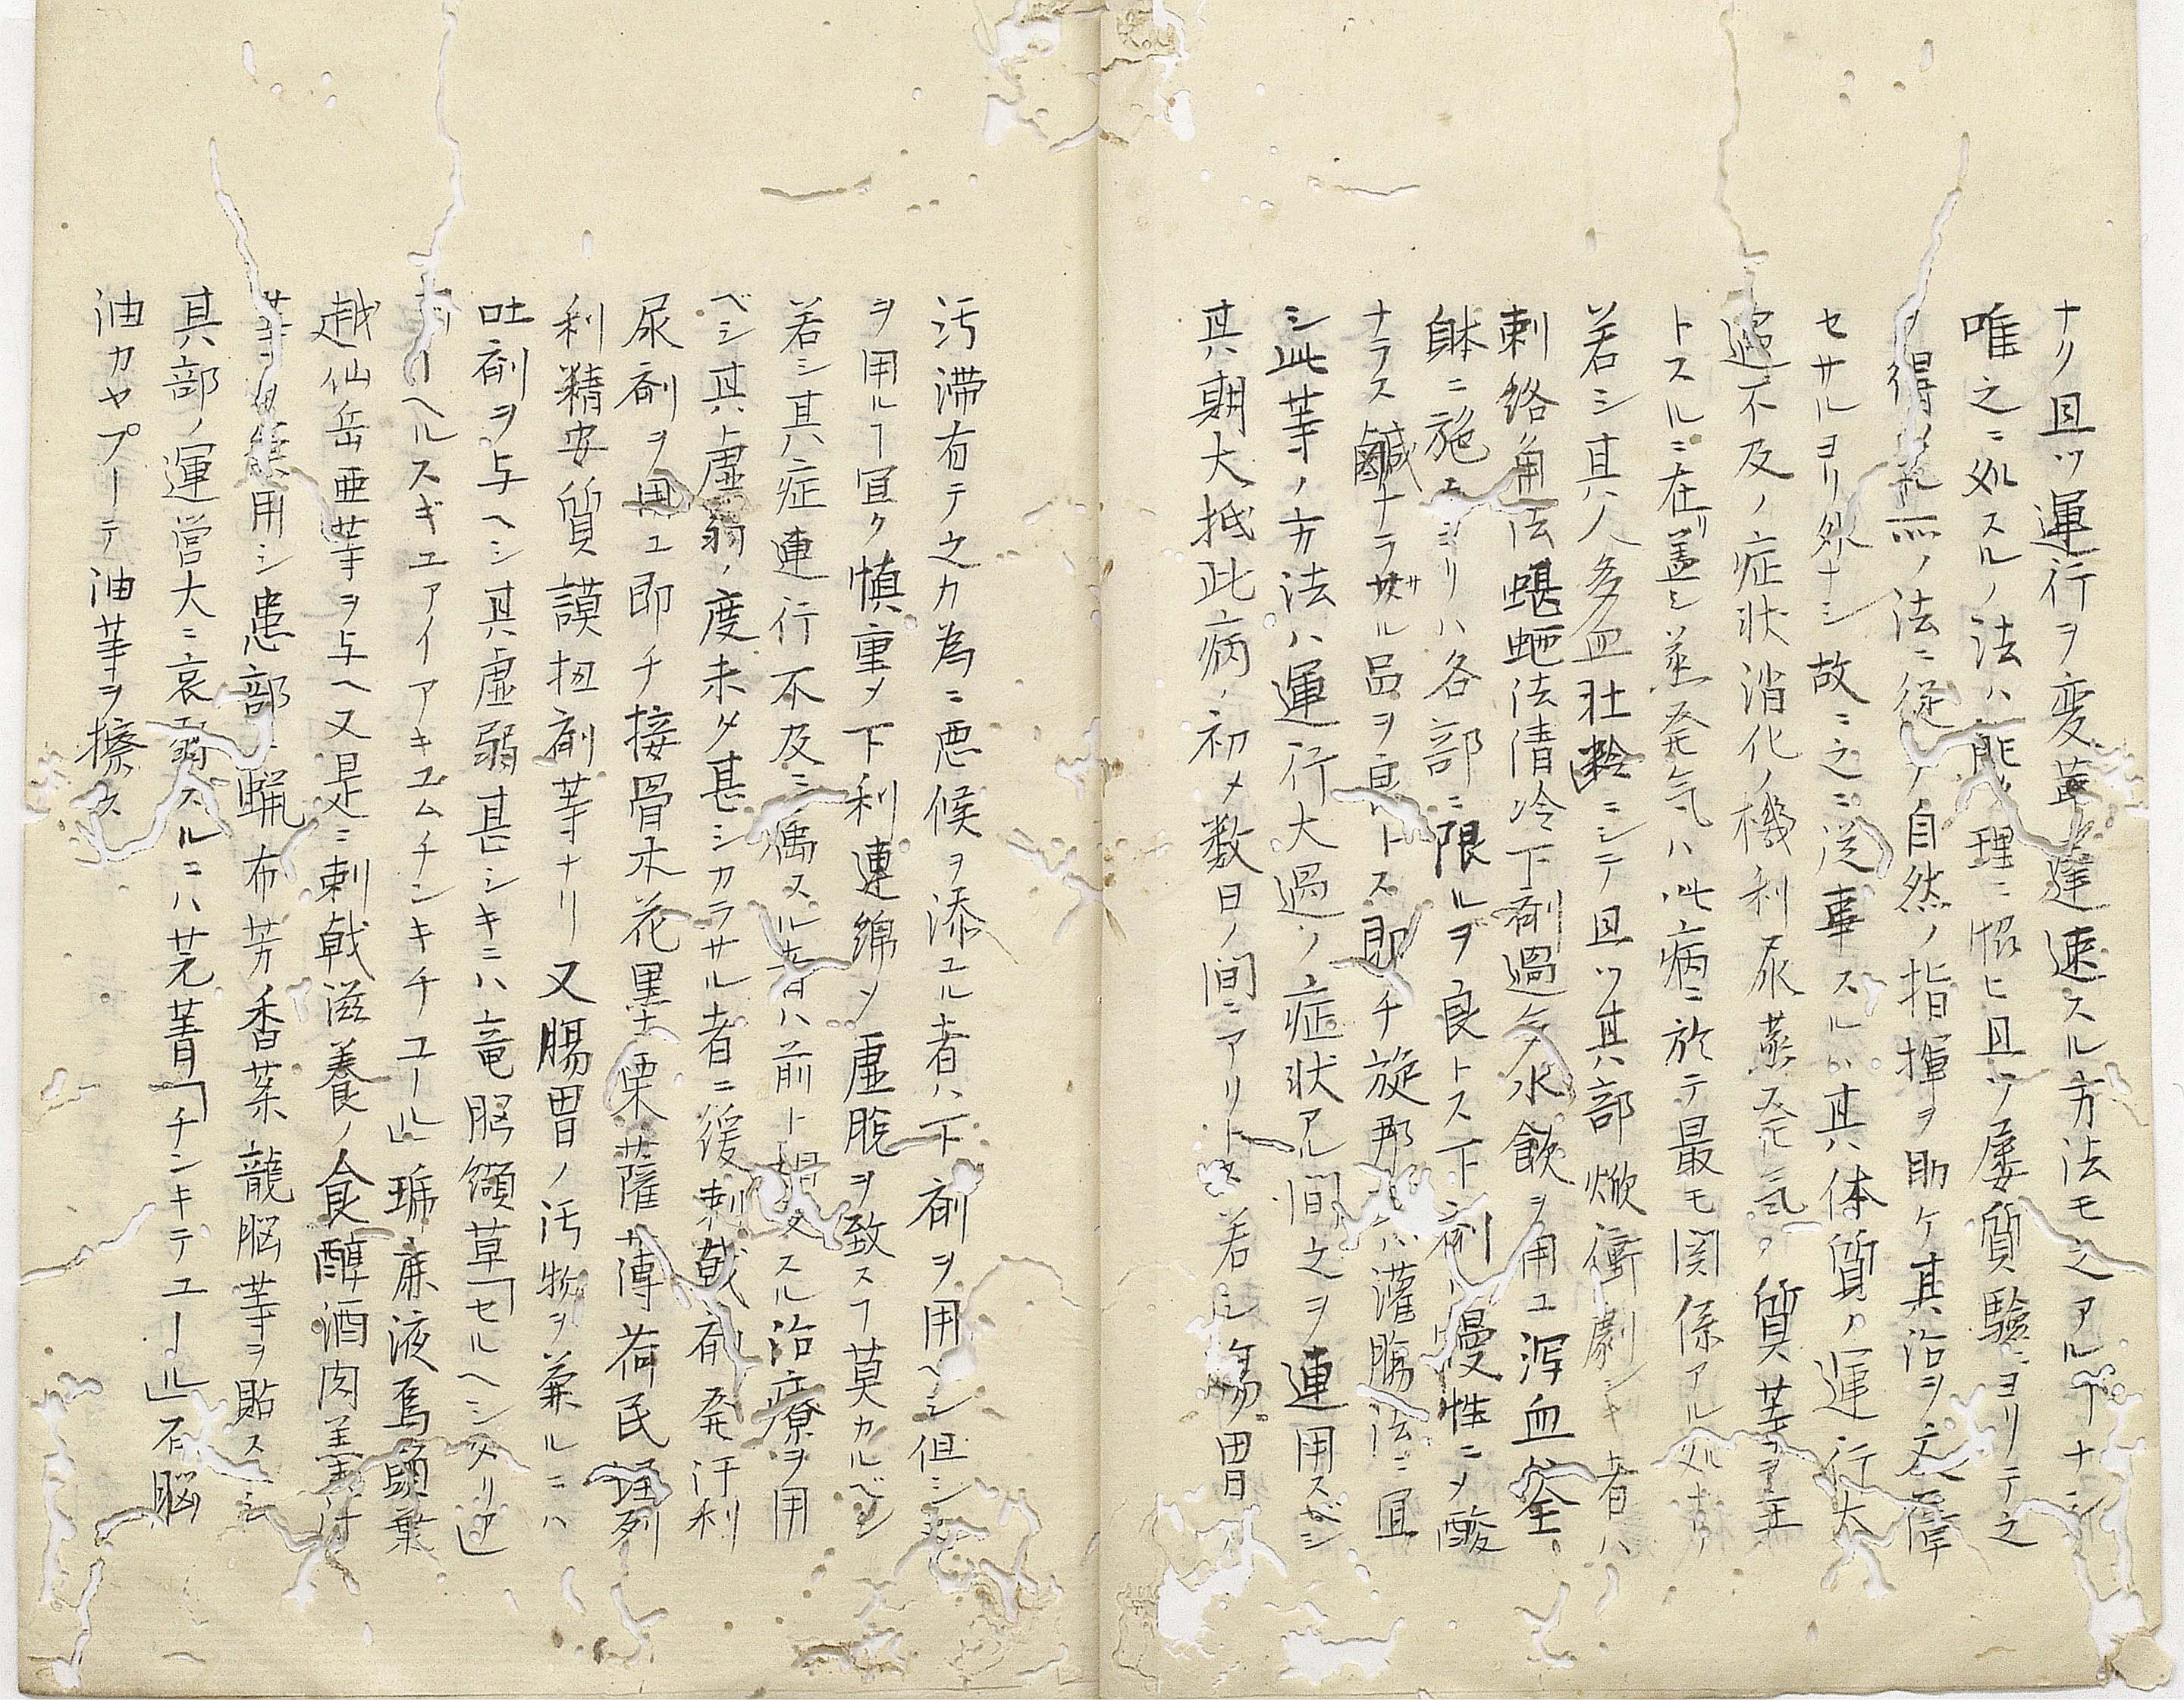 ナリ且ツ運行ヲ変革達速スル方法モ之アルヿナシ
唯之ニ処スルノ法ハ能ク理ニ恊ヒ且ツ屡質験ニヨリテ之
ヲ得ノ法ニ従ノ自然ノ指揮ヲ助ケ其治ヲ
セサルヨリ外ナシ故ニ之ニ従事スルハ其体質ノ運行大
過不及ノ症状消化ノ機利尿蒸発気ノ質等ヲ主
トスルニ在リ蓋シ蒸発気ハ此病ニ於テ最モ関係アル処ナリ
若シ其人多血壮齢ニシテ且ツ其部焮衝劇シキ者ハ
刺絡角法蜞蛔法清冷下剤過多水飲ヲ用ユ瀉血
自体ニ施スヨリハ各部ニ限ルヲ良トス下剤ハ慢性ニメ酸
ナラス鹹ナラザル品ヲ良トス即チ旋那ハ灌腸法ニ宜
シ此等ノ方法ハ運行大過ノ症状アル間之ヲ連用スベシ
其期大抵此病ノ初メ数日ノ間ニアリトス若シ腸胃
汚滞有テ之カ為ニ悪候ヲ添ユル者ハ下剤ヲ用ヘシ但シ
ヲ用ルヿ宜ク慎重メ下利連綿ノ虚脱ヲ致スヿ莫カルベシ
若シ其症運行不及ニ属スル者ハ前ト相反スル治療ヲ用
ベシ其虚弱ノ度未タ甚シカラサル者ニ緩刺戟剤発汗利
尿剤ヲ用ユ即チ接骨木花黒士栗薩カ薄荷民垤列
利精安質謨扭剤等ナリ又腸胃ノ汚物ヲ兼ルニハ
吐剤ヲ与ヘシ其虚弱甚シキニハ竜脳纈草「セルヘンタリア」
ヘルスギユアイアキユムチンキチユール」琥廉液烏頭葉
越仙岳亜等ヲ与ヘ又是ニ刺戟滋養ノ食醇酒肉羹汁
等ヲ兼用シ患部ニ蝋布芳香茱龍脳等ヲ貼ス
其部ノ運営大ニ衰弱スルニハ芫菁「チンキテユール」石脳
油カヤプーテ油等ヲ擦ス